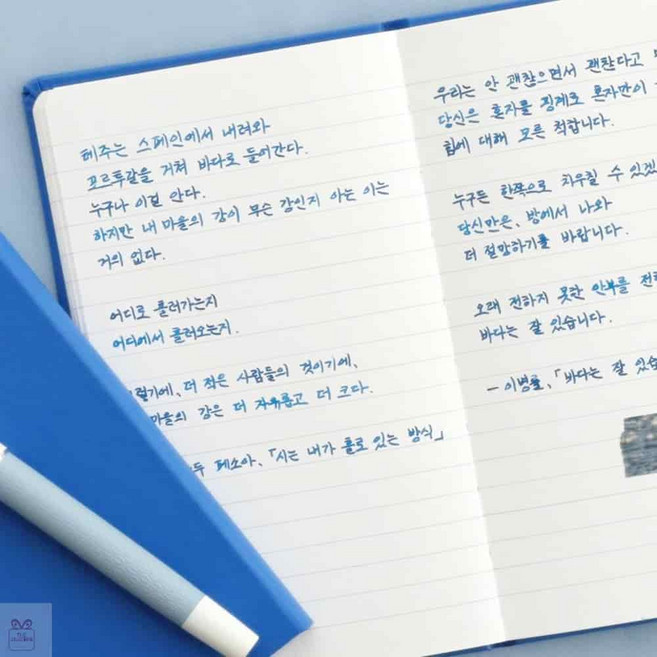 테주는 스페인에서 내려와
포르투갈을 거쳐 바다로 들어간다.
누구나 이걸 안다.
하지만 내 마을의 강이 무슨 강인지 아는 이는
거의 없다.
어디로 흘러가는지
어디에서 흘러오는지.
렇기에, 더 적은 사람들의 것이기에,
마을의 강은 더 자유롭고 더 크다.
두 페소아, 「시는 내가 홀로 있는 방식」
우리는 안 괜찮으면서 괜찮다고
당신은 혼자를 핑계로 혼자만이
힘에 대해 모른 척합니다.
누구든 한쪽으로 치우칠 수 있겠
당신만은, 방에서 나와
더 절망하기를 바랍니다.
오래 전하지 못한 안부를 전
바다는 잘 있습니다.
- 이병률, 「바다는 잘 있습